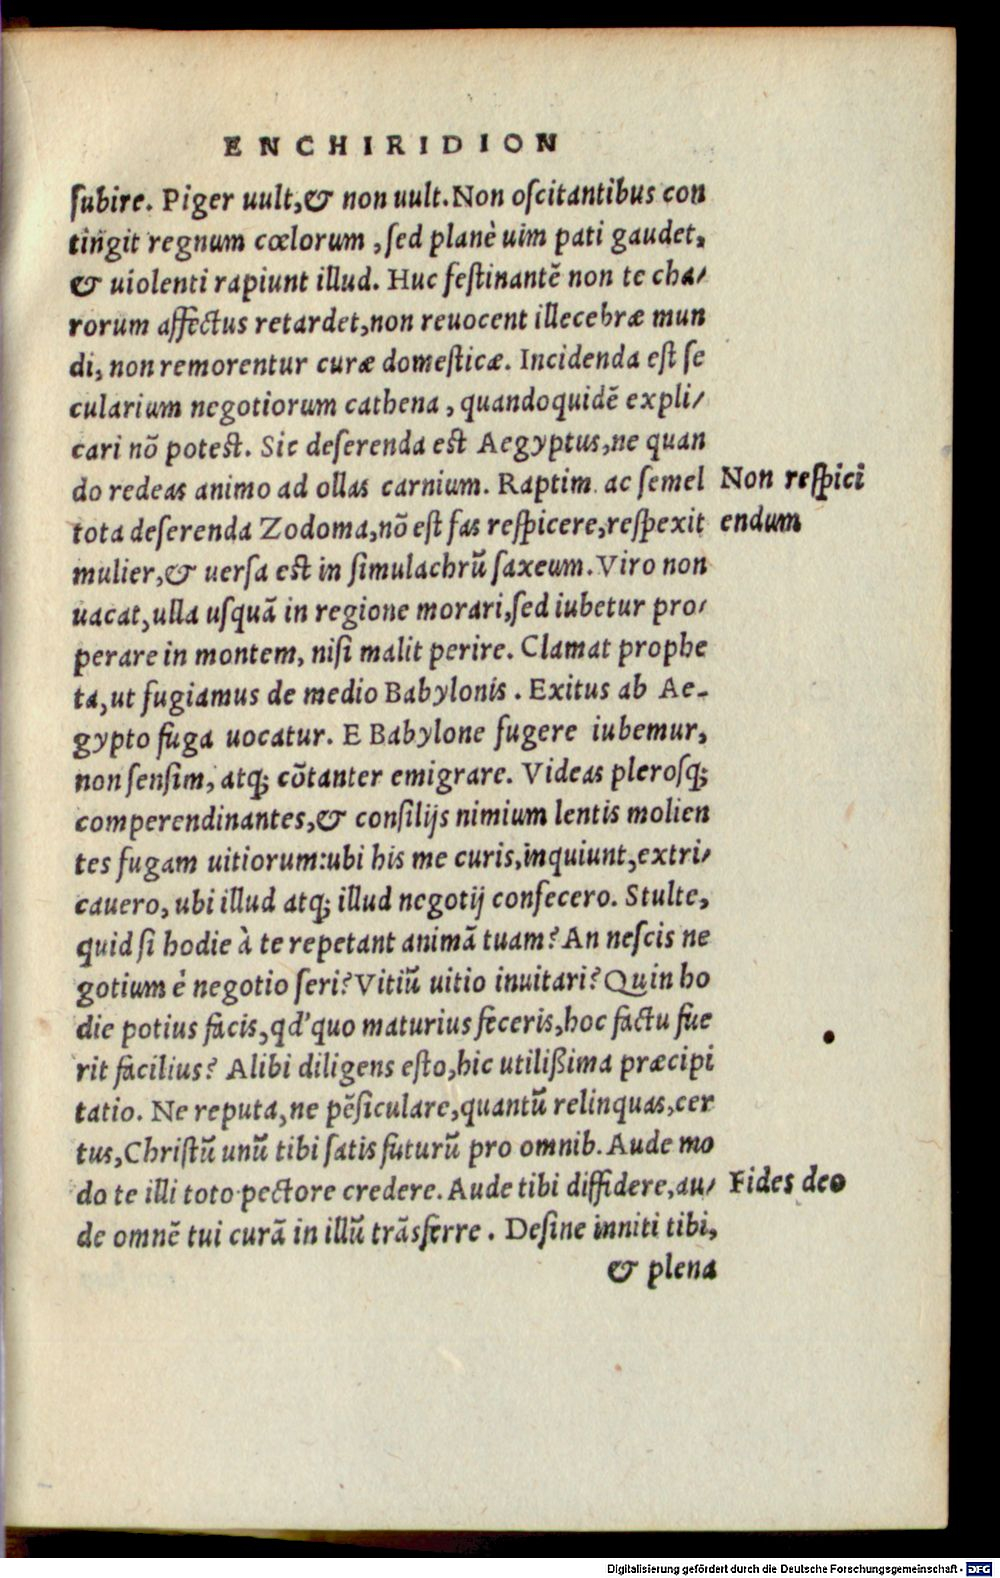 ENCHIRIDION
ſubire. Piger uult,& non uult. Non oſcitantibus con
tingit regnum cœlorum , ſed planè uim pati gaudet,
& uiolenti rapiunt illud. Huc feſtinantē non te cha-
rorum affectus retardet,non reuocent illecebræ mun
di, non remorentur curæ domeſticæ. Incidenda eſt ſe
cularium negotiorum cathena , quandoquidē expli-
cari nō poteſt. Sic deſerenda eſt Aegyptus,ne quan
do redeas animo ad ollas carnium. Raptim ac ſemel
Non reſpici
tota deſerenda Zodoma,nō eſt fas reſpicere,reſpexit
endum
mulier,& uerſa eſt in ſimulachrū ſaxeum. Viro non
uacat,ulla uſquā in regione morari,ſed iubetur pro-
perare in montem, niſi malit perire. Clamat prophe
ta,ut fugiamus de medio Babylonis . Exitus ab Ae-
gypto fuga uocatur. E Babylone fugere iubemur,
non ſenſim, atq; cōtanter emigrare. Videas pleroſq;
comperendinantes,& conſilijs nimium lentis molien
tes fugam uitiorum:ubi his me curis,inquiunt,extri-
cauero, ubi illud atq; illud negotij confecero. Stulte,
quid ſi hodie à te repetant animā tuam? An neſcis ne
gotium è negotio ſeri? Vitiū uitio inuitari? Quin ho
die potius facis,qd' quo maturius feceris,hoc factu fue
rit facilius? Alibi diligens eſto,hic utilißima præcipi
tatio. Ne reputa,ne pēſiculare,quantū relinquas,cer
tus,Chriſtū unū tibi ſatis futurū pro omnib. Aude mo
do te illi toto pectore credere. Aude tibi diffidere,au-
Fides deo
de omnē tui curā in illū trāsferre . Deſine inniti tibi,
& plena
Digitalisierung gefördert durch die Deutsche Forschungsgemeinschaft - DFG